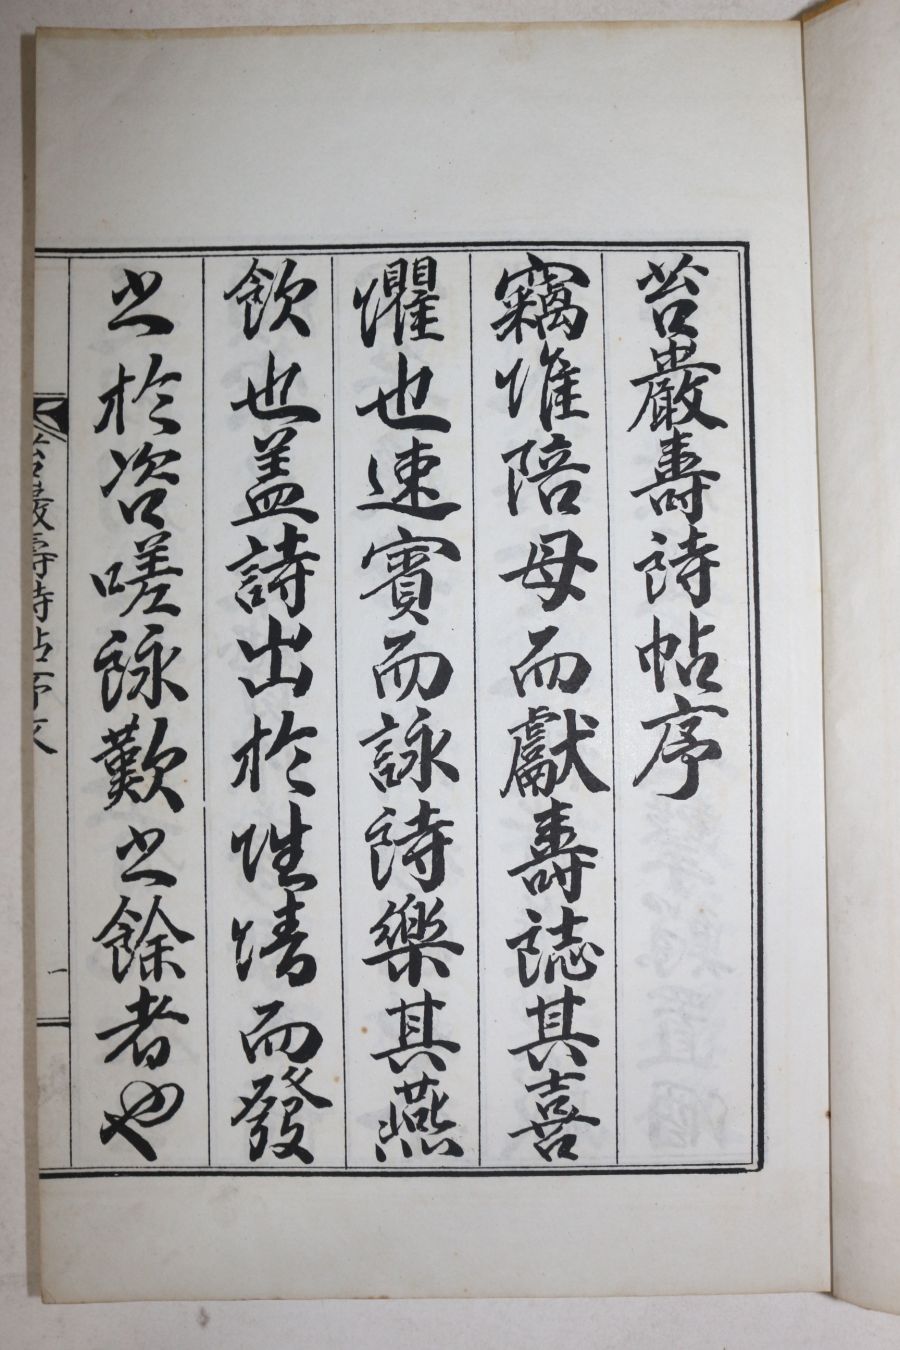 苔巖壽詩帖序
竊惟陪母而獻壽誌其喜
懼也速賓而詠詩樂其燕
飮也盖詩出於性情而發
之於咨嗟詠歎之餘者也
苔巖壽詩帖序文
一